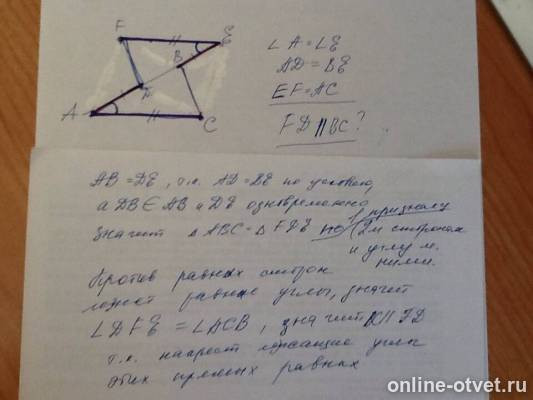 F
E
B
D
A
C
∠A = ∠E
AD = BE
EF = AC
FD || BC?
AB = DE, т.к. AD = BE по условию,
а DB ∈ AB и DE одновременно
значит △ABC = △FDE по 1 признаку
(2м сторонам
и углу м.
ними.
Против равных сторон
лежат равные углы, значит
∠DFE = ∠ACB, значит BC || FD
т.к. накрест лежащие углы
этих прямых равны
online-otvet.ru